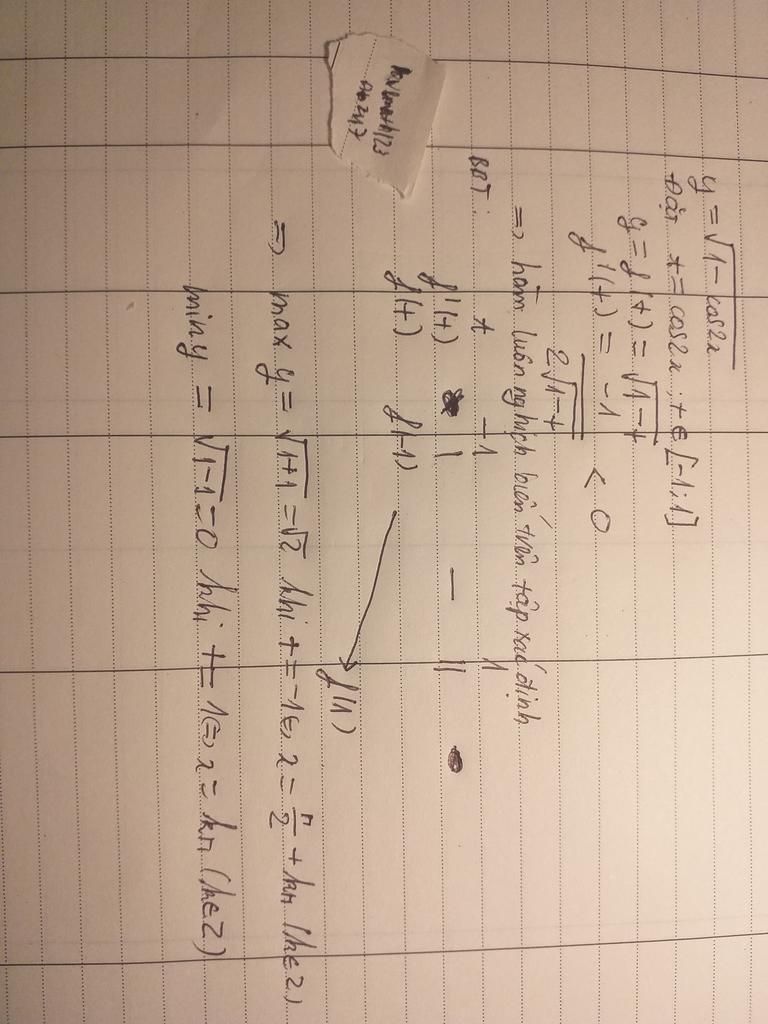 y = √1-cos2x
Đặt t = cos2x ; t ∈ [-1;1]
y = f(t) = √1-t
f'(t) = -1 / 2√1-t < 0
=> hàm luôn nghịch biến trên tập xác định
BBT: t -1 1
f'(t) | - ||
f(t) f(-1) f(1)
=> max y = √1+1 = √2 khi t = -1 <=> x = π/2 + kπ (k∈Z)
min y = √1-1 = 0 khi t = 1 <=> x = kπ (k∈Z)